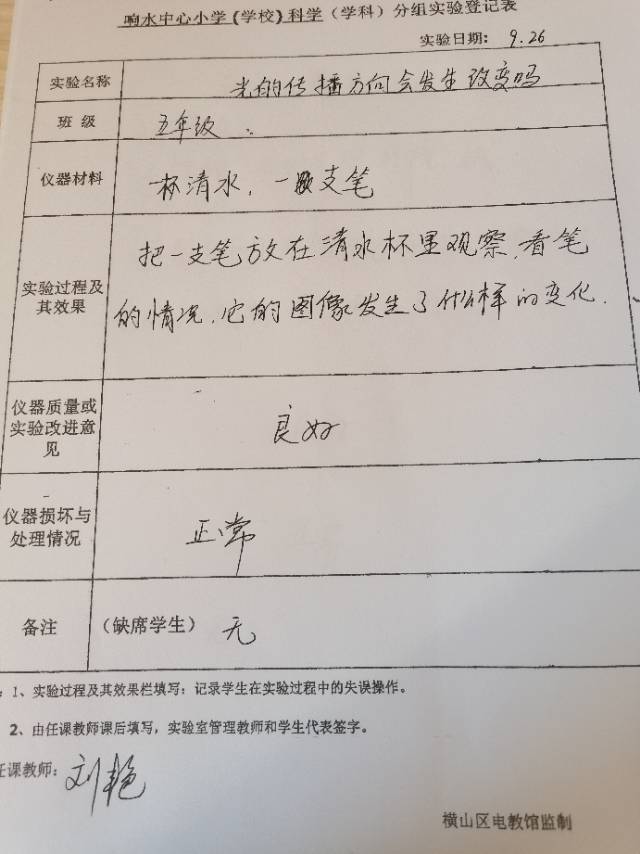 响水中心小学(学校)科学(学科)分组实验登记表
实验日期: 9.26
实验名称 光的传播方向会发生改变吗
班 级 五年级.
仪器材料 一杯清水,一支笔
实验过程及其效果 把一支笔放在清水杯里观察,看笔
的情况,它的图像发生了什么样的变化.
仪器质量或实验改进意见 良好
仪器损坏与处理情况 正常
备注 (缺席学生) 无
:1、实验过程及其效果栏填写:记录学生在实验过程中的失误操作。
2、由任课教师课后填写,实验室管理教师和学生代表签字。
任课教师: 刘艳
横山区电教馆监制